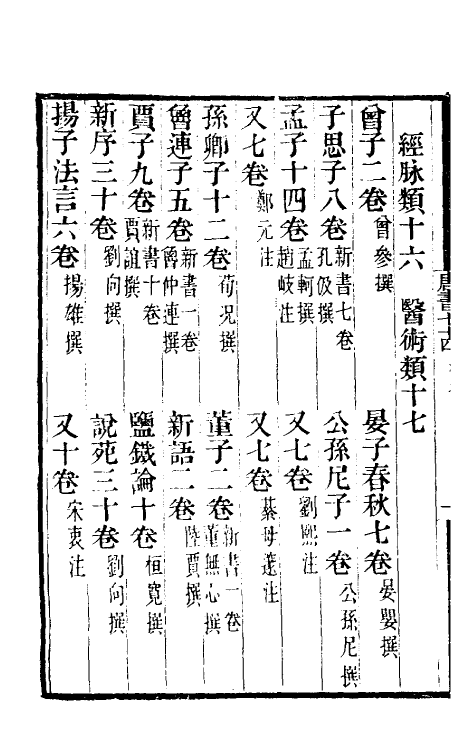 經脉類十六　醫術類十七
曾子二卷曾參撰　晏子春秋七卷晏嬰撰
子思子八卷新書七卷孔伋撰　公孫尼子一卷公孫尼撰
孟子十四卷孟軻撰趙岐注　又七卷劉熙注
又七卷鄭元注　又七卷綦毋邃注
孫卿子十二卷荀况撰　董子二卷新書一卷董無心撰
魯連子五卷新書一卷魯仲連撰　新語二卷陸賈撰
賈子九卷新書十卷賈誼撰　鹽鐵論十卷桓寬撰
新序三十卷劉向撰　說苑三十卷劉向撰
揚子法言六卷揚雄撰　又十卷宋衷注